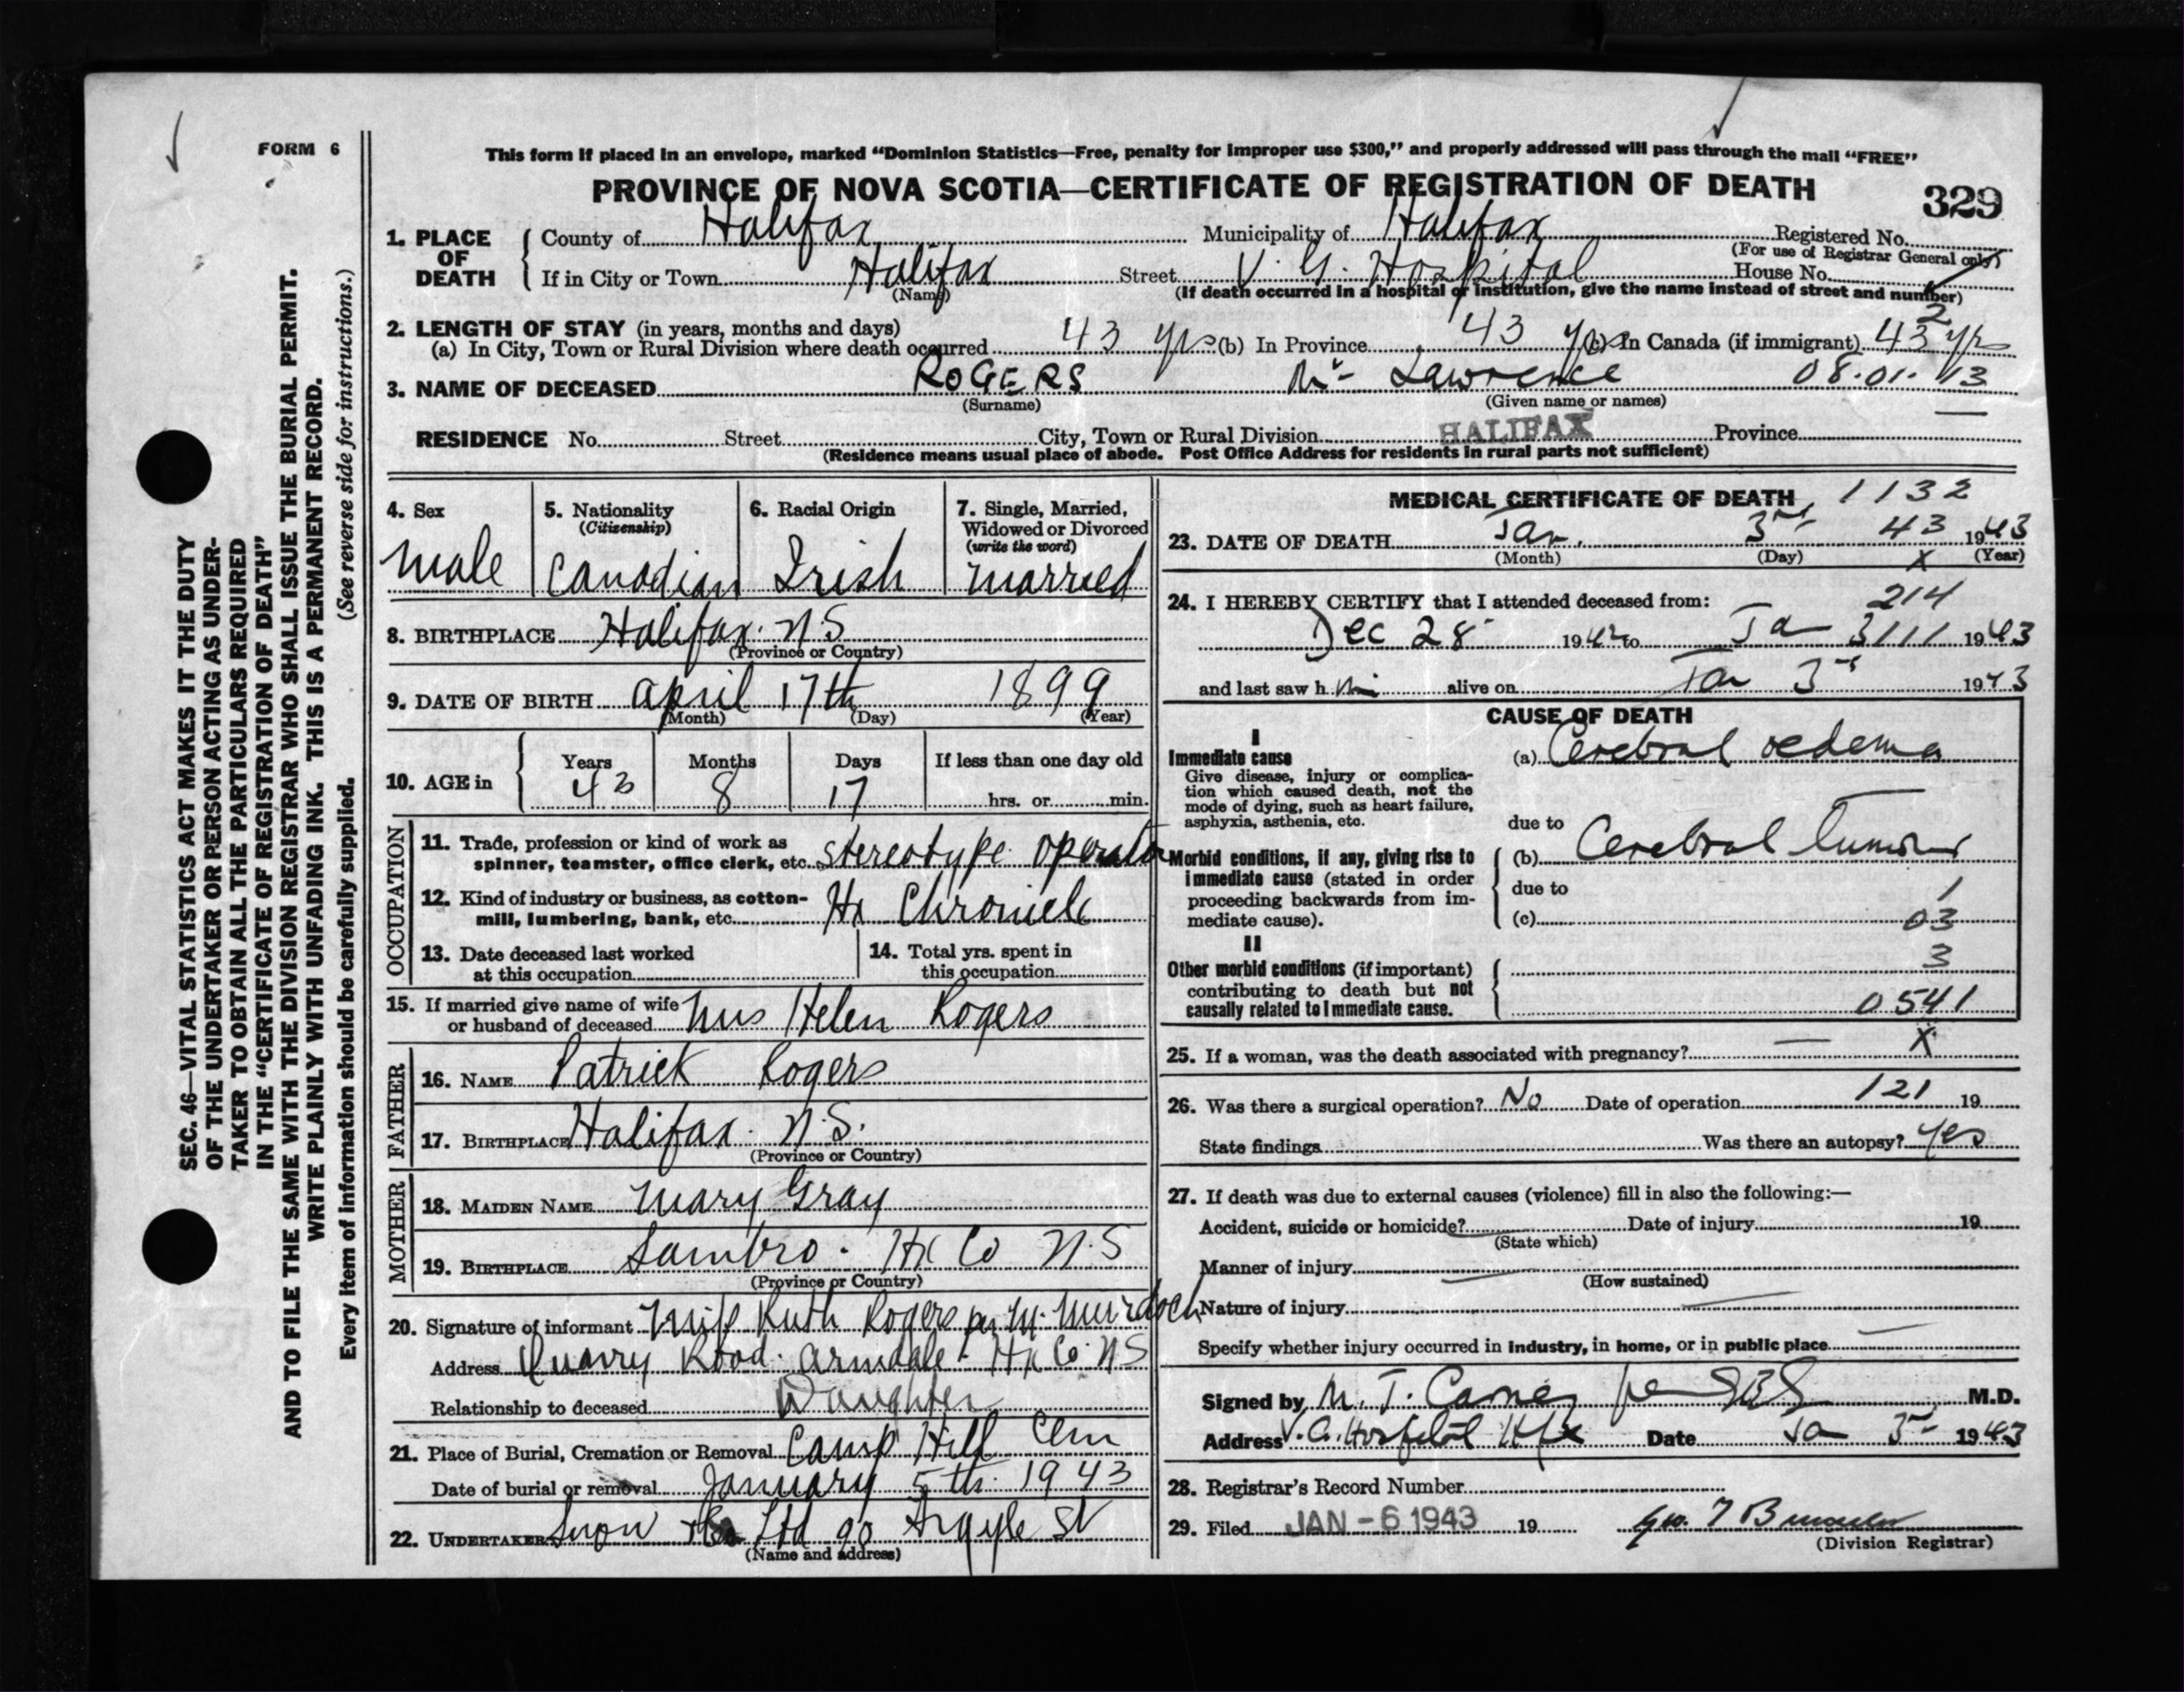 FORM 6
This form if placed in an envelope, marked "Dominion Statistics—Free, penalty for improper use $300," and properly addressed will pass through the mail "FREE"
PROVINCE OF NOVA SCOTIA—CERTIFICATE OF REGISTRATION OF DEATH
329
1. PLACE OF DEATH
County of Halifax Municipality of Halifax Registered No.
(For use of Registrar General only)
If in City or Town Halifax Street V. G. Hospital House No.
(Name) (If death occurred in a hospital or institution, give the name instead of street and number)
2
2. LENGTH OF STAY (in years, months and days)
(a) In City, Town or Rural Division where death occurred 43 yrs (b) In Province 43 yrs (c) In Canada (if immigrant) 43 yrs
3. NAME OF DECEASED ROGERS Mr Lawrence 08.01.13
(Surname) (Given name or names)
RESIDENCE No. Street City, Town or Rural Division HALIFAX Province
(Residence means usual place of abode. Post Office Address for residents in rural parts not sufficient)
4. Sex
male
5. Nationality
(Citizenship)
Canadian
6. Racial Origin
Irish
7. Single, Married, Widowed or Divorced
(write the word)
married
8. BIRTHPLACE Halifax. N.S
(Province or Country)
9. DATE OF BIRTH April 17th 1899
(Month) (Day) (Year)
10. AGE in Years 43 Months 8 Days 17 If less than one day old
hrs. or min.
OCCUPATION
11. Trade, profession or kind of work as
spinner, teamster, office clerk, etc. stereotype operator
12. Kind of industry or business, as cotton-
mill, lumbering, bank, etc. Hx Chronicle
13. Date deceased last worked
at this occupation
14. Total yrs. spent in
this occupation
15. If married give name of wife
or husband of deceased Mrs Helen Rogers
FATHER
16. NAME Patrick Rogers
17. BIRTHPLACE Halifax. N.S.
(Province or Country)
MOTHER
18. MAIDEN NAME Mary Gray
19. BIRTHPLACE Sambro. Hx Co N.S
(Province or Country)
20. Signature of informant Miss Ruth Rogers per M. Murdoch
Address Quarry Road. Armdale. Hx Co. NS
Relationship to deceased Daughter
21. Place of Burial, Cremation or Removal Camp Hill Cem
Date of burial or removal January 5th. 1943
22. UNDERTAKER Snow & Co Ltd 90 Argyle St
(Name and address)
MEDICAL CERTIFICATE OF DEATH 1132
23. DATE OF DEATH Jan. 3rd 43 1943
(Month) (Day) x (Year)
214
24. I HEREBY CERTIFY that I attended deceased from:
Dec 28 1942 to Ja 3 111 1943
and last saw him alive on Jan 3rd 1943
CAUSE OF DEATH
I
Immediate cause
Give disease, injury or complica-
tion which caused death, not the
mode of dying, such as heart failure,
asphyxia, asthenia, etc.
(a) Cerebral oedema
due to
Morbid conditions, if any, giving rise to
immediate cause (stated in order
proceeding backwards from im-
mediate cause).
(b) Cerebral tumour
due to 1
(c) 03
II
Other morbid conditions (if important)
contributing to death but not
causally related to immediate cause.
3
0541
25. If a woman, was the death associated with pregnancy? — X
26. Was there a surgical operation? No Date of operation 121 19
State findings Was there an autopsy? yes
27. If death was due to external causes (violence) fill in also the following:—
Accident, suicide or homicide? Date of injury 19
(State which)
Manner of injury
(How sustained)
Nature of injury
Specify whether injury occurred in industry, in home, or in public place
Signed by M. T. M.D.
Address V.G. Hospital Hfx Date Ja 3rd 1943
28. Registrar's Record Number
29. Filed JAN - 6 1943 19
(Division Registrar)
SEC. 46—VITAL STATISTICS ACT MAKES IT THE DUTY
OF THE UNDERTAKER OR PERSON ACTING AS UNDER-
TAKER TO OBTAIN ALL THE PARTICULARS REQUIRED
IN THE "CERTIFICATE OF REGISTRATION OF DEATH"
AND TO FILE THE SAME WITH THE DIVISION REGISTRAR WHO SHALL ISSUE THE BURIAL PERMIT.
WRITE PLAINLY WITH UNFADING INK. THIS IS A PERMANENT RECORD.
Every item of information should be carefully supplied. (See reverse side for instructions.)